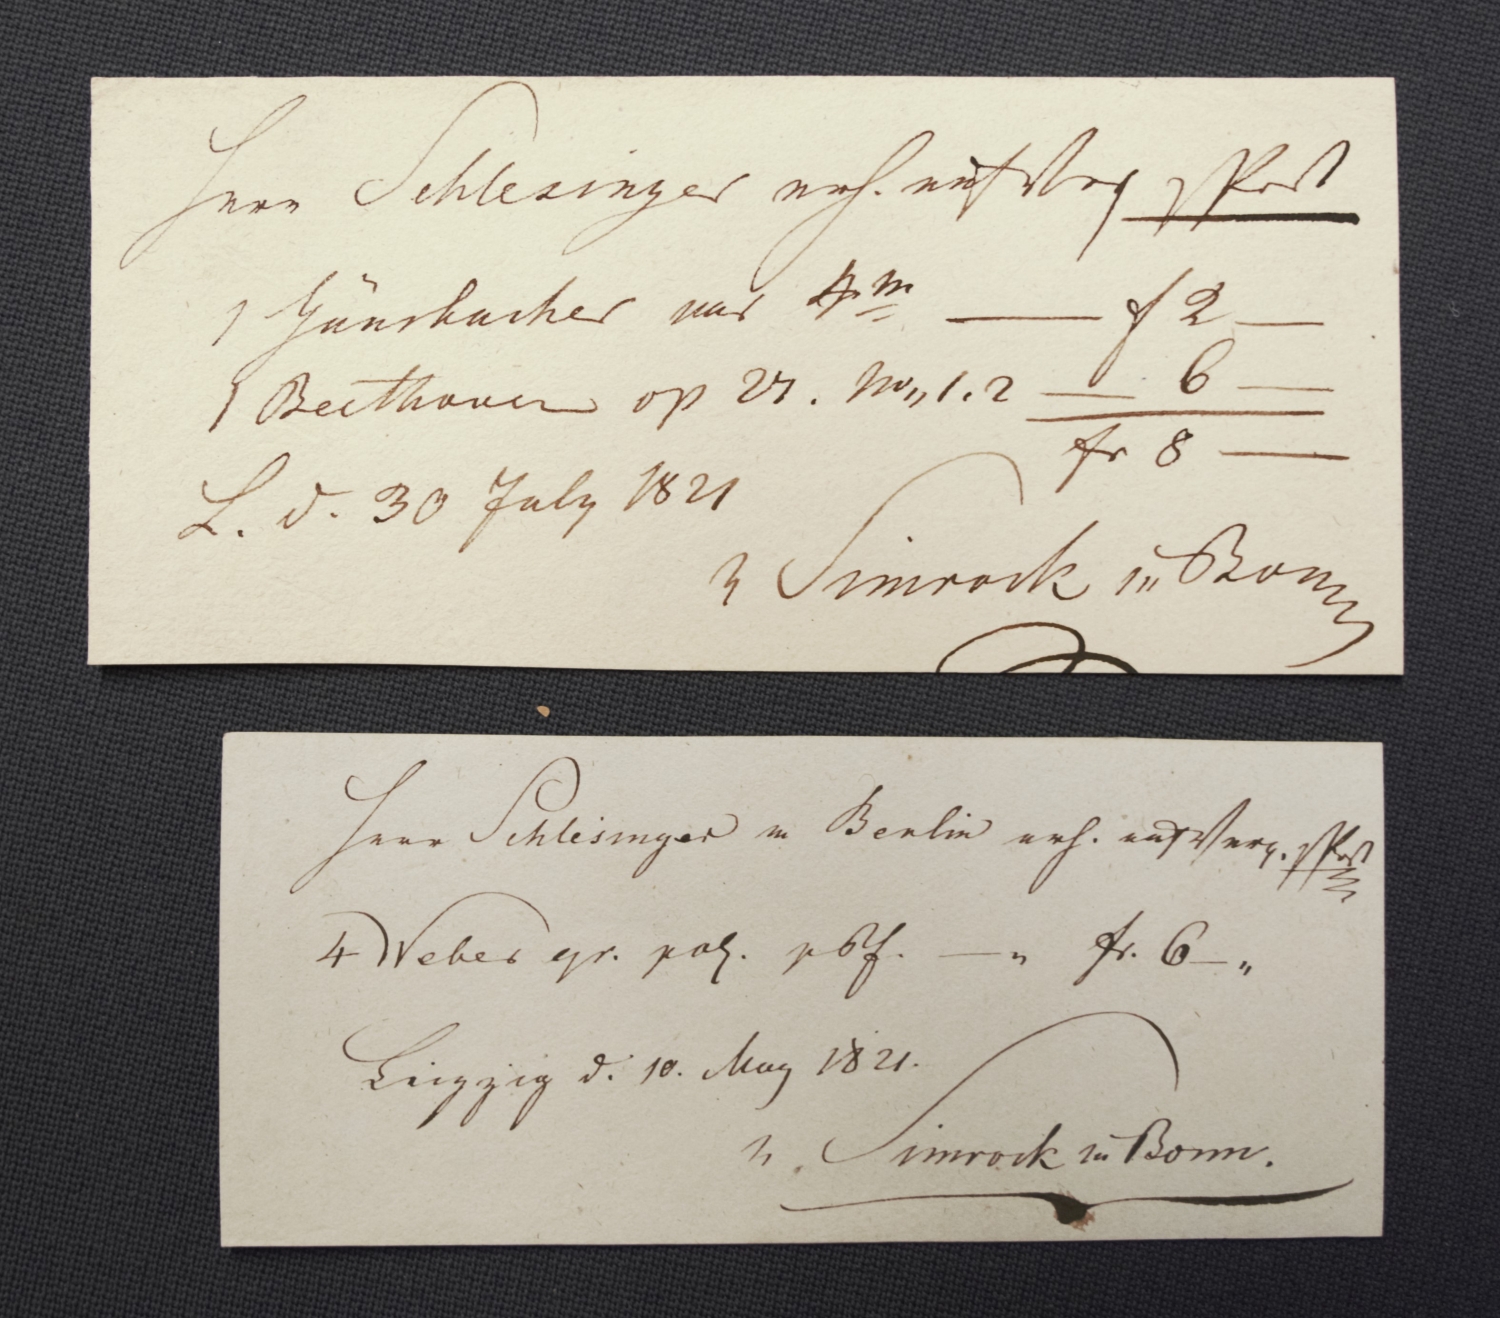 Herr Schlesinger erh. auf Verg. pPost
1 Gänsbacher var 4m — f 2 —
1 Beethoven op 27. No„ 1. 2 — 6 —
fr 8 —
L. d. 30 July 1821
Simrock in Bonn
Herr Schlesinger in Berlin erh. auf Verg. pPost
4 Weber gr. pol. pf. — „ fr. 6 — „
Leipzig d. 10. May 1821.
Simrock in Bonn.